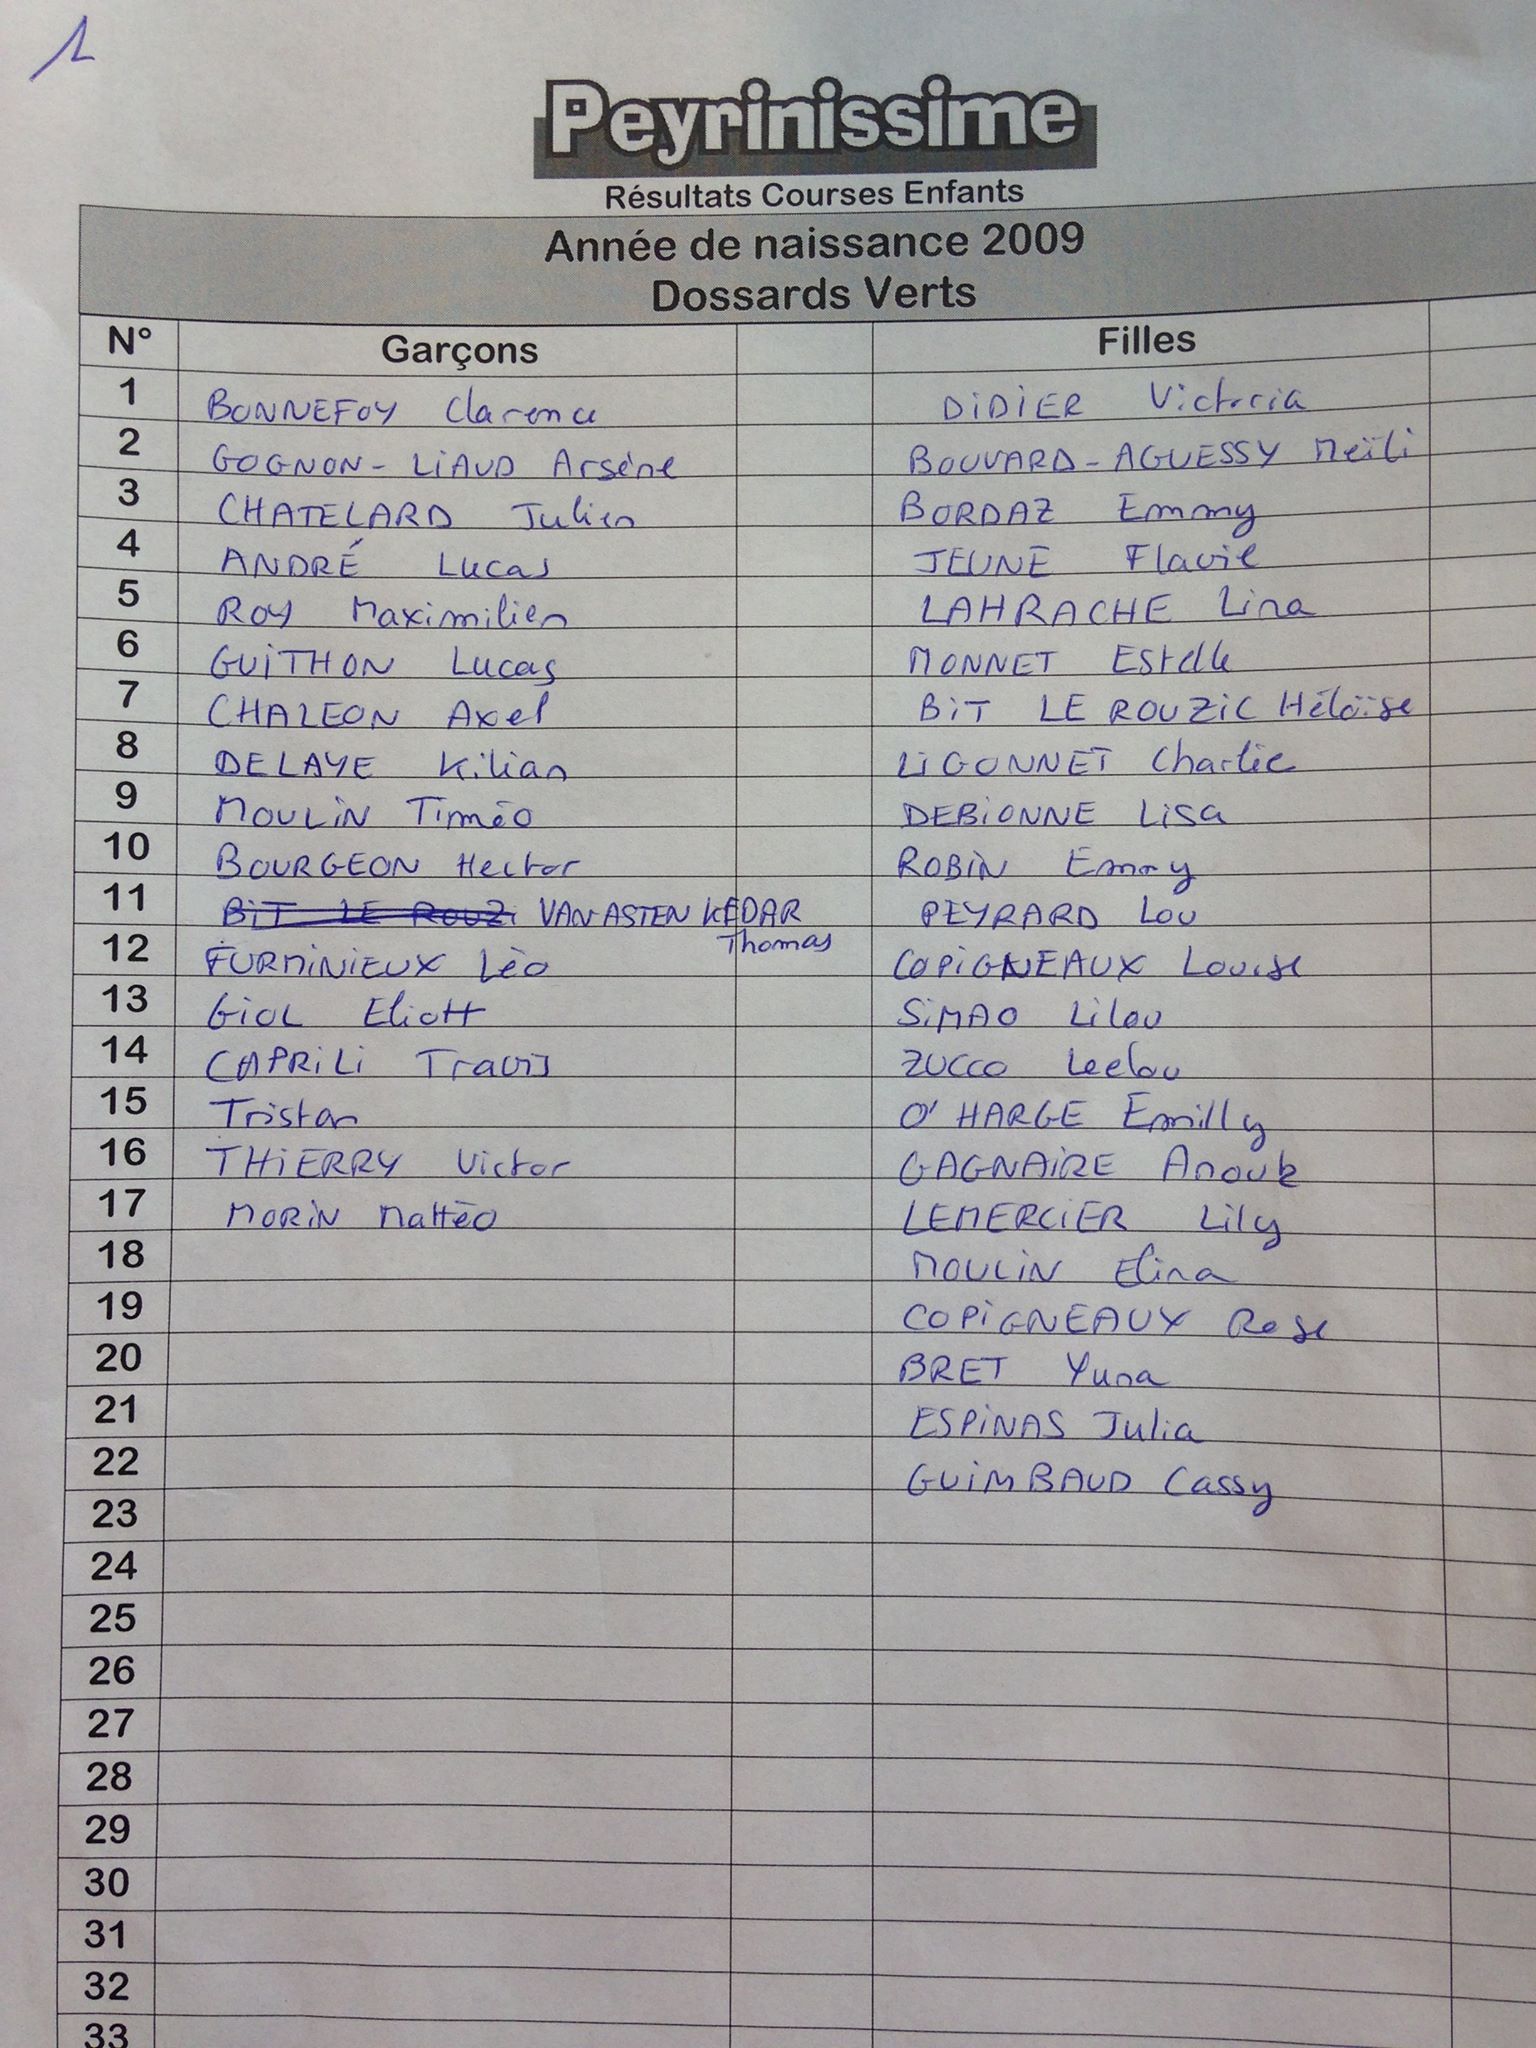 1
Peyrinissime
Résultats Courses Enfants
Année de naissance 2009
Dossards Verts
N° Garçons Filles
1 BONNEFOY Clarence DIDIER Victoria
2 GOGNON-LIAUD Arsène BOUVARD-AGUESSY Meïli
3 CHATELARD Julien BORDAZ Emmy
4 ANDRÉ Lucas JEUNE Flavie
5 ROY Maximilien LAHRACHE Lina
6 GUITHON Lucas MONNET Estelle
7 CHALEON Axel BIT LE ROUZIC Héloïse
8 DELAYE Kilian LIGONNET Charlie
9 MOULIN Timéo DEBIONNE Lisa
10 BOURGEON Hector ROBIN Emmy
11 BIT LE ROUZI VAN ASTEN KEDAR Thomas PEYRARD Lou
12 FURMINIEUX Léo COPIGNEAUX Louise
13 GIOL Eliott SIMAO Lilou
14 CAPRILI Travis ZUCCO Leelou
15 Tristan O'HARGE Emilly
16 THIERRY Victor GAGNAIRE Anouk
17 MORIN Mattéo LEMERCIER Lily
18 MOULIN Elina
19 COPIGNEAUX Rose
20 BRET Yuna
21 ESPINAS Julia
22 GUIMBAUD Cassy
23
24
25
26
27
28
29
30
31
32
33